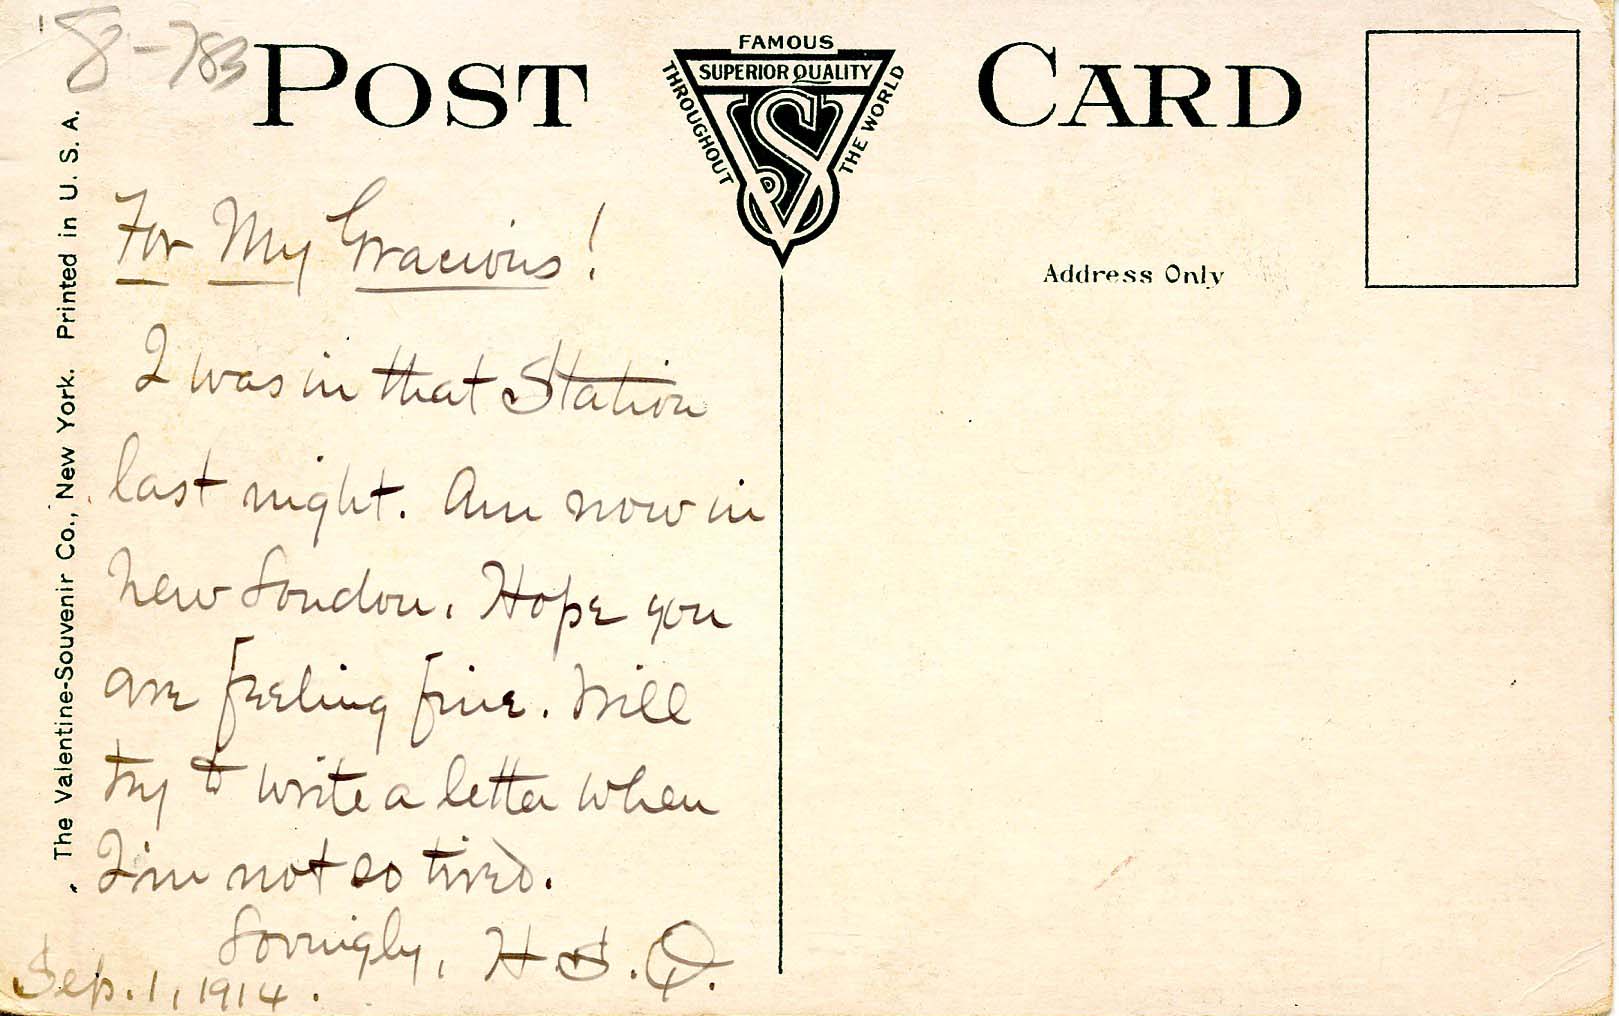 8-783
POST CARD
FAMOUS
SUPERIOR QUALITY
THROUGHOUT
THE WORLD
VS
Address Only
The Valentine-Souvenir Co., New York. Printed in U. S. A.
For My Gracious!
I was in that Station
last night. Am now in
New London. Hope you
are feeling fine. Will
try to write a letter when
I'm not so tired.
Lovingly, H.S.Q.
Sep. 1, 1914.